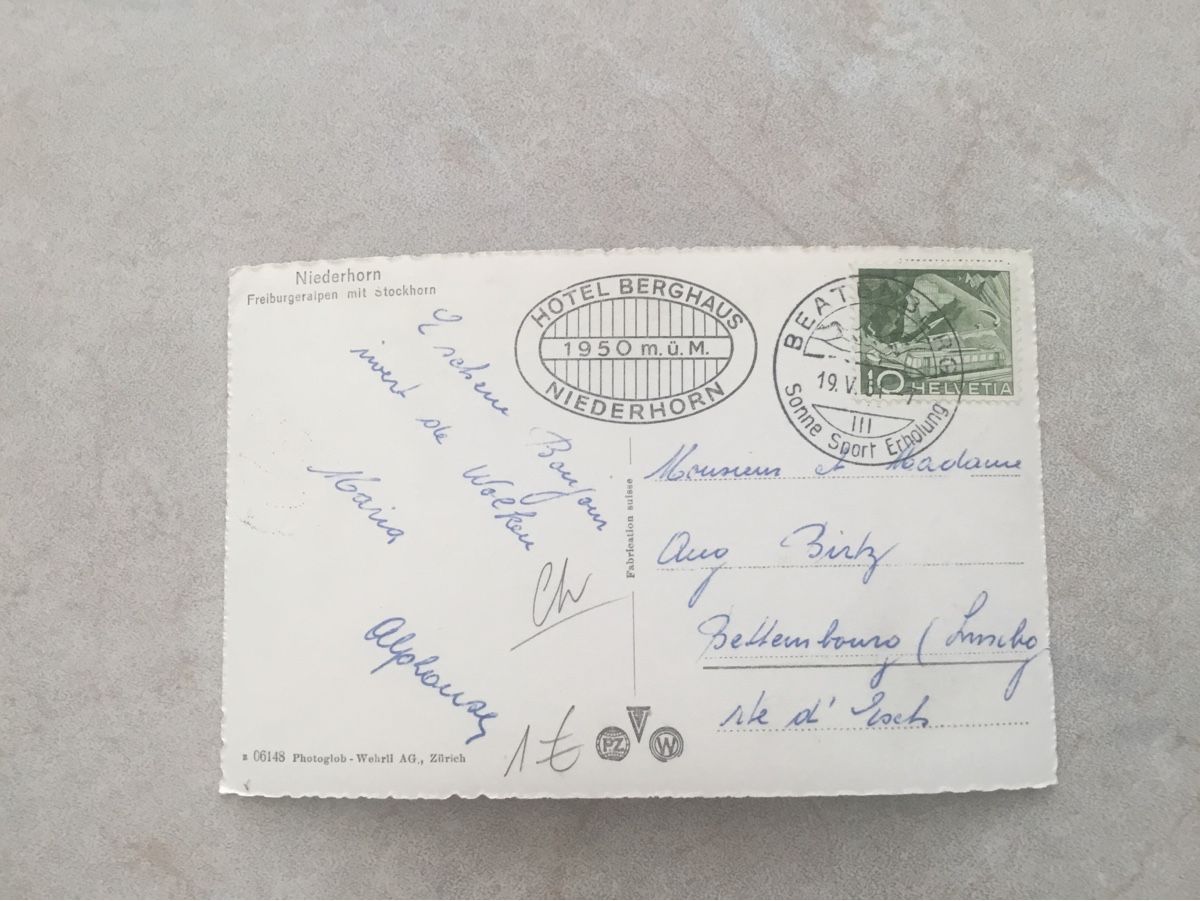 Niederhorn
Freiburgeralpen mit Stockhorn
HOTEL BERGHAUS
1950 m.ü.M.
NIEDERHORN
19. V.
III
Sonne Sport Erholung
10 HELVETIA
E schene Bonjour
iwert de Wolken
Maria
Alphonse
Ch
1€
Fabrication suisse
Monsieur et Madame
Aug Birtz
Bettembourg (Luxbg
rte d'Esch
06148 Photoglob - Wehrli AG., Zürich
PZ
W